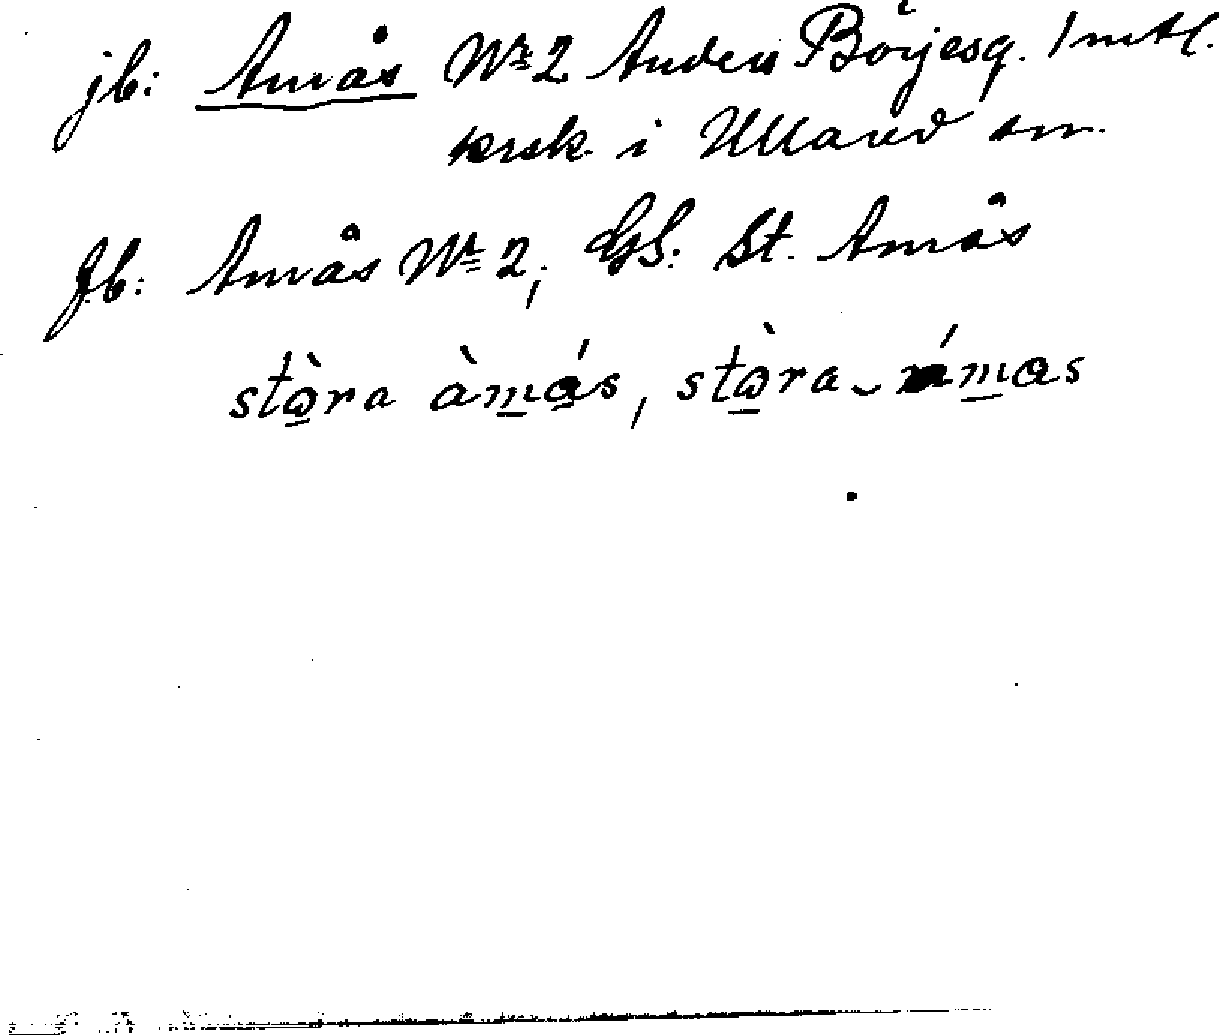 jb: Amås Nr 2 Anders Börjesg. 1 mtl.
krsk i Ullared sn.
Jb: Amås Nr 2, GS: St. Amås
stɷ̀ra àmás, stɷ̀ra‿ámas